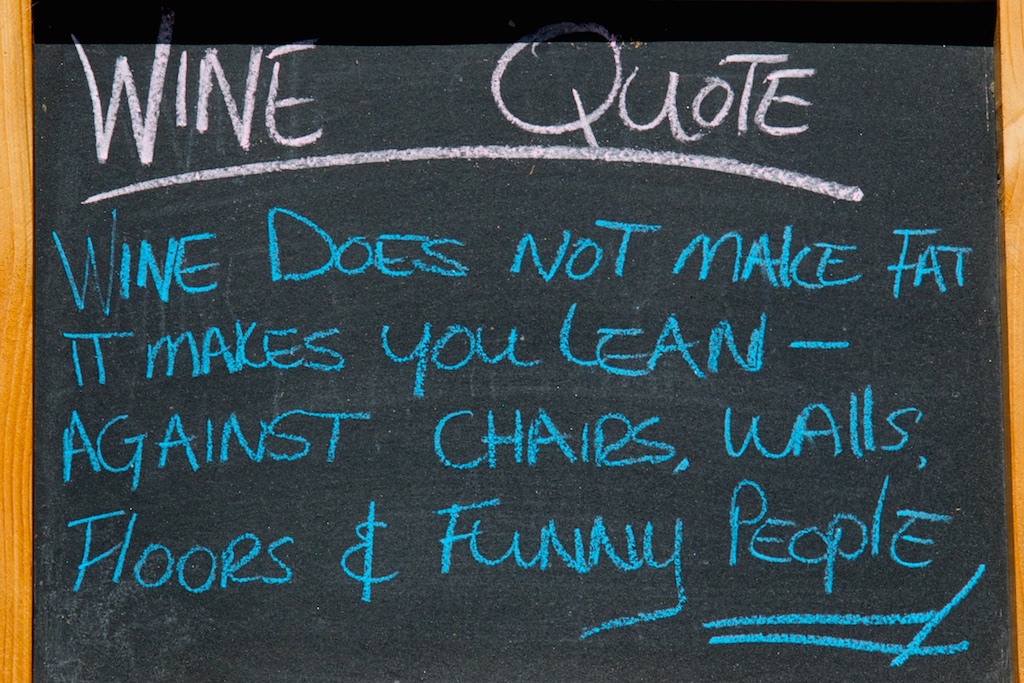 WINE QUOTE
WINE DOES NOT MAKE FAT
IT MAKES YOU LEAN –
AGAINST CHAIRS, WALLS,
FLOORS & FUNNY PEOPLE